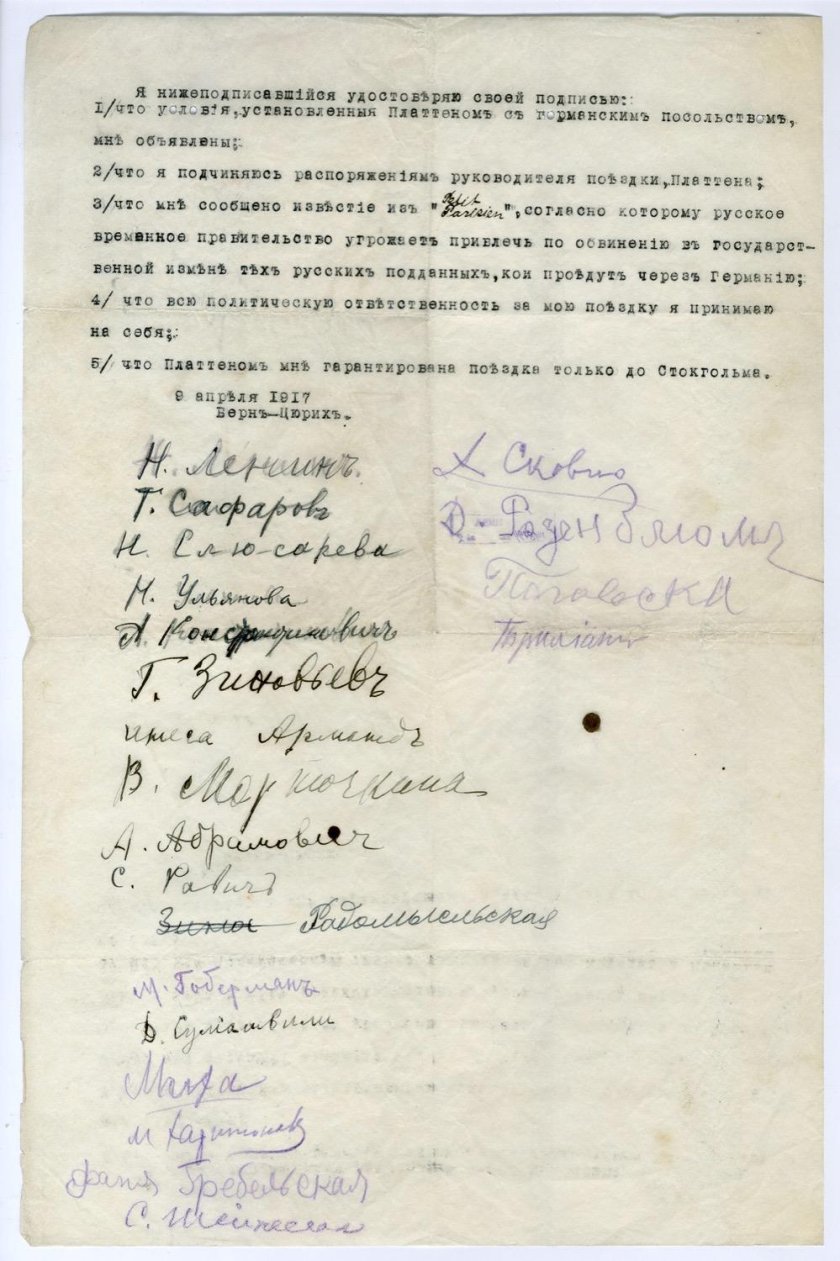 Я нижеподписавшійся удостовѣряю своей подписью:
1/что условія,установленныя Платтеномъ съ германскимъ посольствомъ,
мнѣ объявлены;
2/что я подчиняюсь распоряженіямъ руководителя поѣздки,Платтена;
3/что мнѣ сообщено извѣстіе изъ "Petit Parisien",согласно которому русское
временное правительство угрожаетъ привлечь по обвиненію въ государст-
венной измѣнѣ тѣхъ русскихъ подданныхъ,кои проѣдутъ черезъ Германію;
4/ что всю политическую отвѣтственность за мою поѣздку я принимаю
на себя;
5/ что Платтеномъ мнѣ гарантирована поѣздка только до Стокгольма.
9 апрѣля 1917
Бернъ-Цюрихъ.
Н. Ленинъ
Г. Сафаровъ
Н. Ульянова
А. Константиновичъ
Г. Зиновьевъ
Инеса Армандъ
А. Абрамовичъ
С. Равичъ
Зина Радомысльская
М. Гоберманъ
Д. Сулиашвили
М Харитонов
Фаня Гребельская
А Сковно
Д. Розенблюмъ